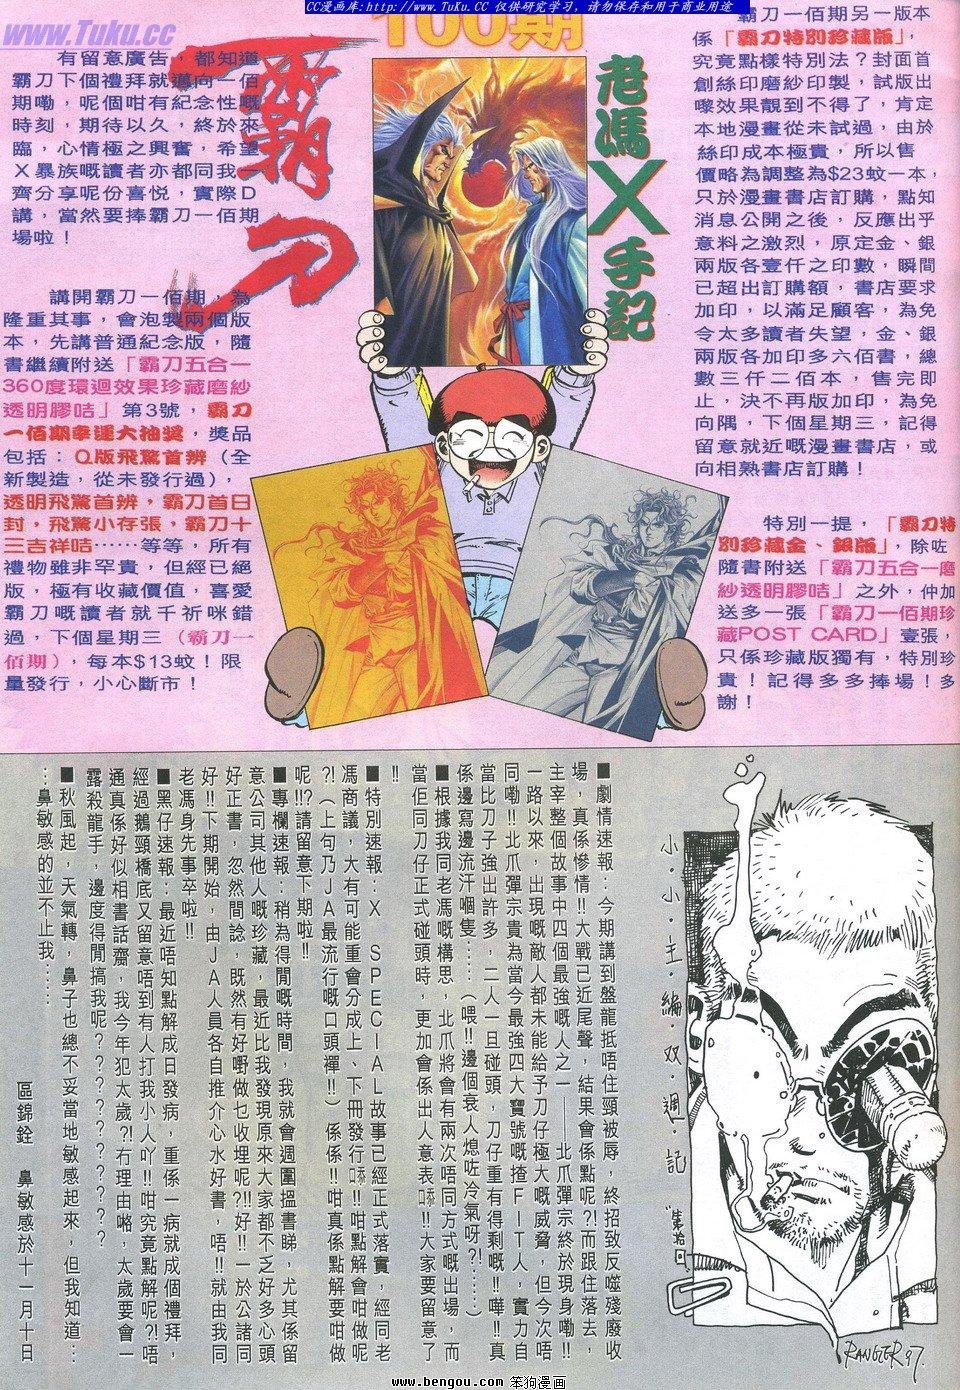 CC漫画库:http://www.TuKu.CC 仅供研究学习，请勿保存和用于商业用途
www.Tuku.cc
100期
霸刀
老馮X手記
有留意廣告，都知道
霸刀下個禮拜就邁向一佰
期嘞，呢個咁有紀念性嘅
時刻，期待以久，終於來
臨，心情極之興奮，希望
X暴族嘅讀者亦都同我一
齊分享呢份喜悅，實際D
講，當然要捧霸刀一佰期
場啦！
講開霸刀一佰期，為
隆重其事，會泡製兩個版
本，先講普通紀念版，隨
書繼續附送「霸刀五合一
360度環迴效果珍藏磨紗
透明膠咭」第3號，霸刀
一佰期幸運大抽獎，獎品
包括：Q版飛驚首辨（全
新製造，從未發行過），
透明飛驚首辨，霸刀首日
封，飛驚小存張，霸刀十
三吉祥咭……等等，所有
禮物雖非罕貴，但經已絕
版，極有收藏價值，喜愛
霸刀嘅讀者就千祈咪錯
過，下個星期三（霸刀一
佰期），每本$13蚊！限
量發行，小心斷市！
霸刀一佰期另一版本
係「霸刀特別珍藏版」，
究竟點樣特別法？封面首
創絲印磨紗印製，試版出
嚟效果靚到不得了，肯定
本地漫畫從未試過，由於
絲印成本極貴，所以售
價略為調整為$23蚊一本，
只於漫畫書店訂購，點知
消息公開之後，反應出乎
意料之激烈，原定金、銀
兩版各壹仟之印數，瞬間
已超出訂購額，書店要求
加印，以滿足顧客，為免
令太多讀者失望，金、銀
兩版各加印多六佰書，總
數三仟二佰本，售完即
止，決不再版加印，為免
向隅，下個星期三，記得
留意就近嘅漫畫書店，或
向相熟書店訂購！
特別一提，「霸刀特
別珍藏金、銀版」，除咗
隨書附送「霸刀五合一磨
紗透明膠咭」之外，仲加
送多一張「霸刀一佰期珍
藏POST CARD」壹張，
只係珍藏版獨有，特別珍
貴！記得多多捧場！多
謝！
小．小．主．編．双．週．記
"第拾回"
RANGER 97.
■劇情速報：今期講到盤龍抵唔住頸被辱，終招致反噬殘廢收
場，真係慘情!!大戰已近尾聲，結果會係點呢?!而跟住落去，
主宰整個故事中四個最強嘅人之一——北爪彈宗終於現身嘞!!
一路以來，出現嘅敵人都未能給予刀仔極大嘅威脅，但今次唔
同嘞!!北爪彈宗貴為當今最強四大寶號嘅揸FIT人，實力自
當比刀子強出許多，二人一旦碰頭，刀仔重有得剩嘅!!嘩!!真
係邊寫邊流汗嗰隻……（喂!!邊個衰人熄咗冷氣呀?!……）
■根據我同老馮嘅構思，北爪將會有兩次唔同方式嘅出場，而
當佢同刀仔正式碰頭時，更加會係出人意表㗎!!大家要留意了
!!
■特別速報：X SPECIAL故事已經正式落實，經同老
馮商議，大有可能重會分成上、下冊發行㗎!!咁點解會咁做呢
?!（上句乃JA最流行嘅口頭禪!!）係係!!咁真係點解要咁做
呢!!?請留意下期啦!!
■專欄速報：稍為得閒嘅時間，我就會週圍搵書睇，尤其係留
意公司其他人嘅珍藏，最近比我發現原來大家都不乏好多心頭
好正書，忽然間諗，既然有好嘢做乜收埋呢?!好!!一於公諸同
好!!下期開始，由JA人員各自推介心水好書，唔!!就由我同
老馮身先事卒啦!!
■黑仔速報：最近唔知點解成日發病，重係一病就成個禮拜，
經過鵝頸橋底又留意唔到有人打我小人吖!!咁究竟點解呢?!唔
通真係好似相書話齋，我今年犯太歲?!冇理由咯，太歲要會一
露殺龍手，邊度得閒搞我呢？？？？？？？？
■秋風起，天氣轉，鼻子也總不妥當地敏感起來，但我知道…
…鼻敏感的並不止我……
區錦銓　鼻敏感於十一月十日
www.bengou.com 笨狗漫画